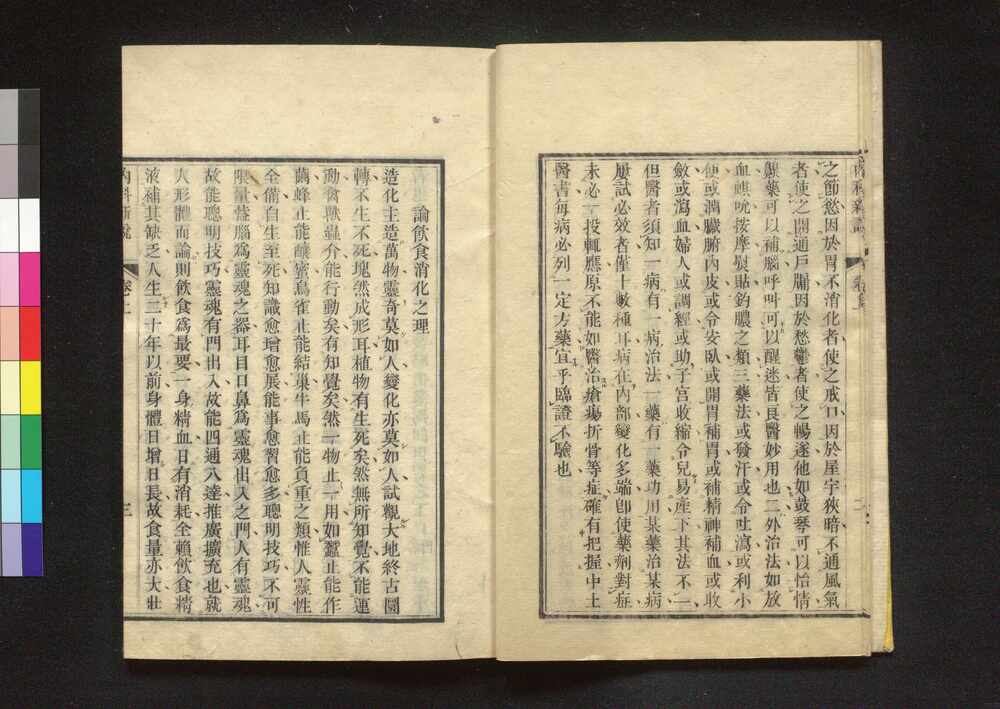 之節慾因於胃不消化者使之戒口因於屋宇狹暗不通風氣
者使之開通戶牖因於愁鬱者使之暢遂他如鼓琴可以怡情
藥可以補腦呼叫可以醒迷皆良醫妙用也二外治法如放
血蜞吮按摩熨貼釣膿之類三藥法或發汗或令吐瀉或利小
便或潤臟腑內皮或令安臥或開胃補胃或補精神補血或收
斂或瀉血婦人或調經或助子宮收縮令兒易產下其法不一
但醫者須知一病有一病治法一藥有一藥功用某藥治某病
屢試必效者僅十數種耳病在內部變化多端卽使藥劑對症
未必一投輒應原不能如醫治瘡瘍折骨等症確有把握中土
醫書每病必列一定方藥宜乎臨證不驗也
論飮食消化之理
造化主造萬物靈奇莫如人變化亦莫如人試觀大地終古圜
轉不生不死塊然成形耳植物有生死矣然無所知覺不能運
動禽獸蟲介能行動矣有知覺矣然一物止一用如蠶止能作
繭蜂止能釀蜜鳥雀止能結巢牛馬止能負重之類惟人靈性
全備自生至死知識愈增愈展能事愈習愈多聰明技巧不可
限量蓋腦爲靈魂之器耳目口鼻爲靈魂出入之門人有靈魂
故能聰明技巧靈魂有門出入故能四通八達推廣擴充也就
人形體而論則飮食爲最要一身精血日有消耗全賴飮食精
液補其缺乏人生二十年以前身體日增日長故食量亦大壯
內科新說
卷上
三